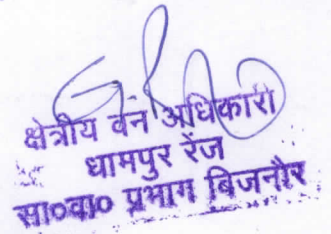 क्षेत्रीय वन अधिकारी
धामपुर रेंज
सा०वा० प्रभाग बिजनौर